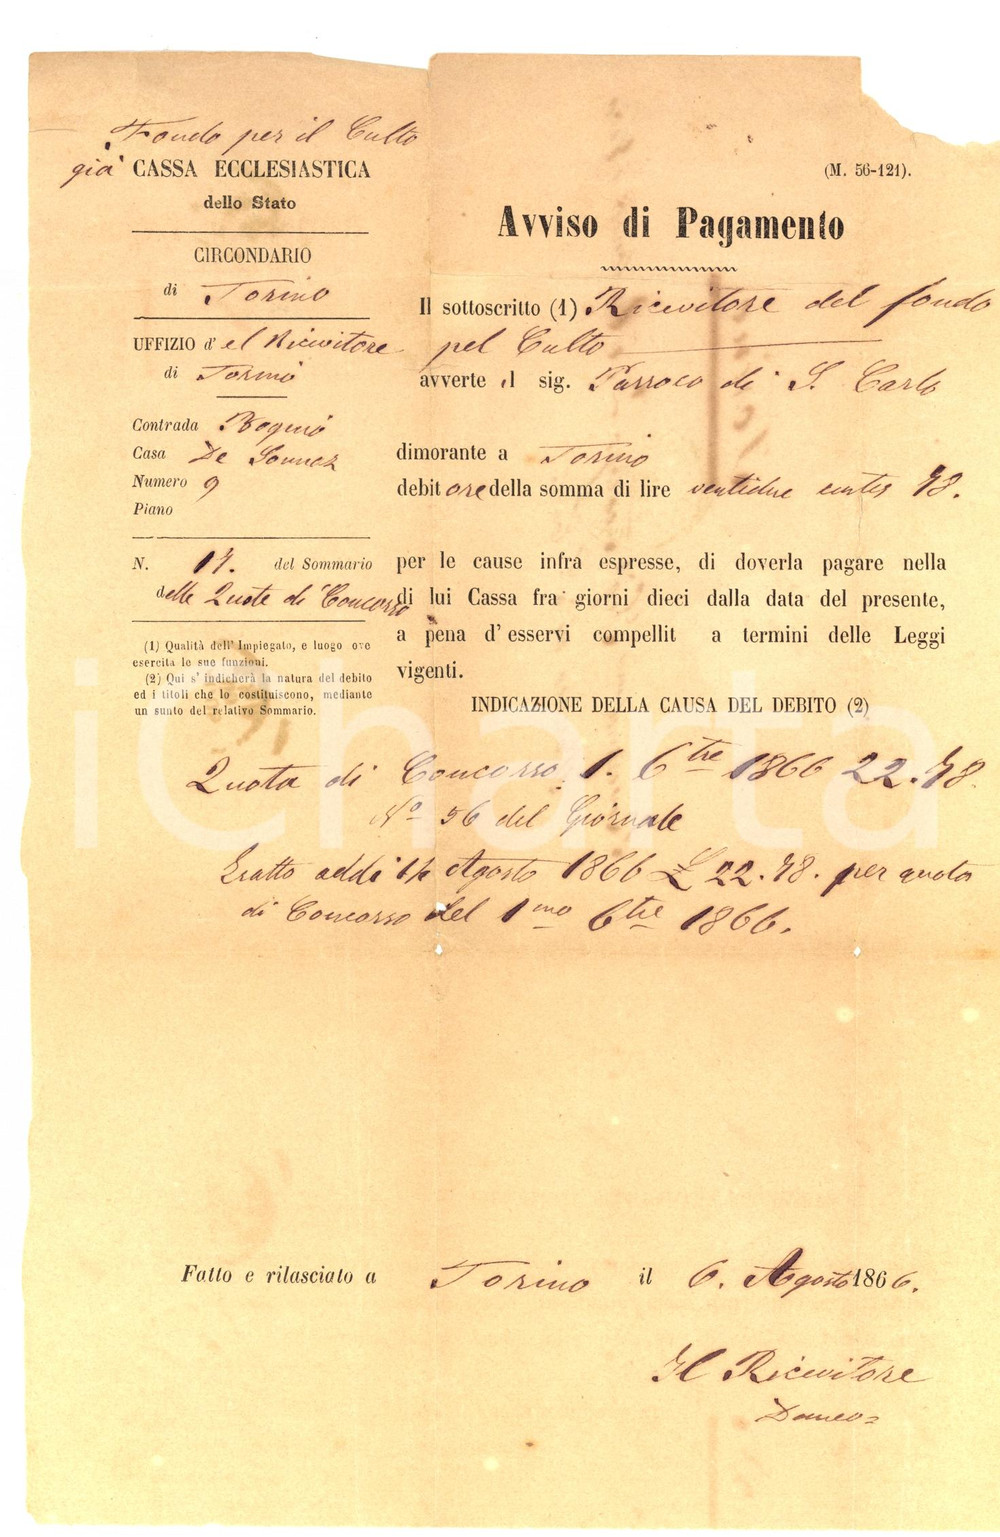 Fondo per il Culto
già CASSA ECCLESIASTICA
dello Stato
CIRCONDARIO
di Torino
UFFIZIO d'el Ricevitore
di Torino
Contrada Bogino
Casa De Sonnaz
Numero 9
Piano
N. 17. del Sommario
delle Quote di Concorso
(1) Qualità dell' Impiegato, e luogo ove
esercita le sue funzioni.
(2) Qui s' indicherà la natura del debito
ed i titoli che lo costituiscono, mediante
un sunto del relativo Sommario.
(M. 56-121).
Avviso di Pagamento
Il sottoscritto (1) Ricevitore del fondo
pel Culto
avverte il sig. Parroco di S. Carlo
dimorante a Torino
debitore della somma di lire ventidue cent. 78.
per le cause infra espresse, di doverla pagare nella
di lui Cassa fra giorni dieci dalla data del presente,
a pena d' esservi compellit a termini delle Leggi
vigenti.
INDICAZIONE DELLA CAUSA DEL DEBITO (2)
Quota di Concorso 1. 6tre 1866 22.78.
No 56 del Giornale
addi 14 Agosto 1866 £ 22.78. per quota
di Concorso del 1mo 6tre 1866.
Fatto e rilasciato a Torino il 6. Agosto 1866.
Il Ricevitore
icharta